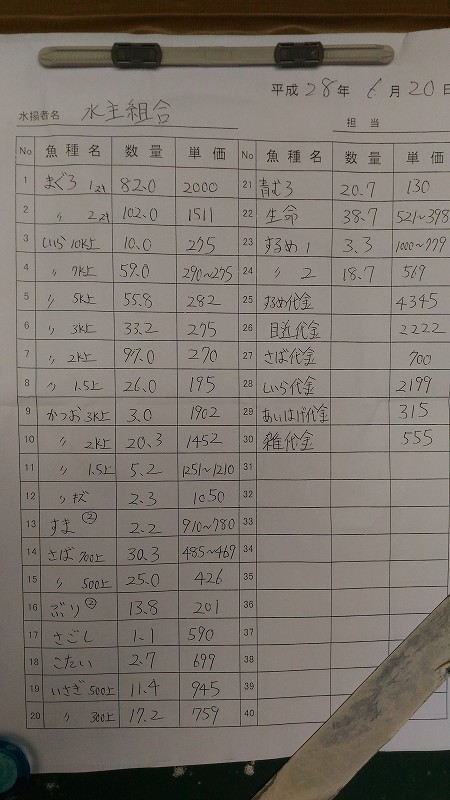 平成 28年 6月 20日
水揚者名 水主組合
担当
No 魚種名 数量 単価 No 魚種名 数量 単価
1 まぐろ 1.2k 82.0 2000 21 青むろ 20.7 130
2 〃 102.0 1511 22 生命 38.7 521~398
3 しいら 10K上 10.0 275 23 するめ 1 3.3 1000~779
4 〃 7K上 59.0 290~275 24 〃 2 18.7 569
5 〃 5K上 55.8 282 25 するめ代金 4345
6 〃 3K上 33.2 275 26 目近代金 2222
7 〃 2K上 97.0 270 27 さば代金 700
8 〃 1.5上 26.0 195 28 しいら代金 2199
9 かつお 3K上 3.0 1902 29 あいはげ代金 315
10 〃 2K上 20.3 1452 30 雑代金 555
11 〃 1.5上 5.2 1251~1210 31
12 〃 キズ 2.3 1050 32
13 すま ② 2.2 910~780 33
14 さば 700上 30.3 485~469 34
15 〃 500上 25.0 426 35
16 ぶり ② 13.8 201 36
17 さごし 1.1 590 37
18 こたい 2.7 699 38
19 いさぎ 500上 11.4 945 39
20 〃 300上 17.2 759 40